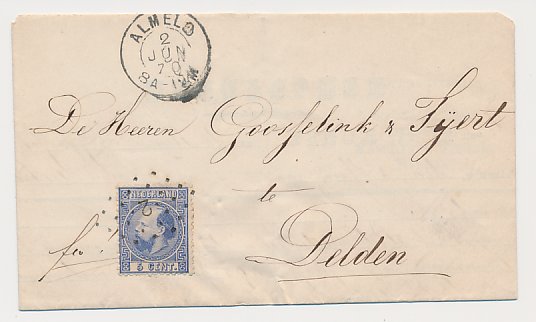 ALMELO
2
JUN
70
8A-12M
De Heeren Goosselink & Tÿert
te
Delden
fco
NEDERLAND
2
5 CENT.